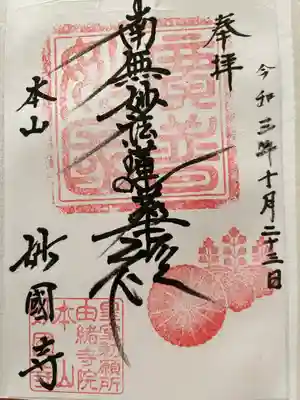 奉拝
今和三年十月二十三日
南無妙法蓮華経
本山
妙國寺
皇室勅願所
由緒寺院
本山